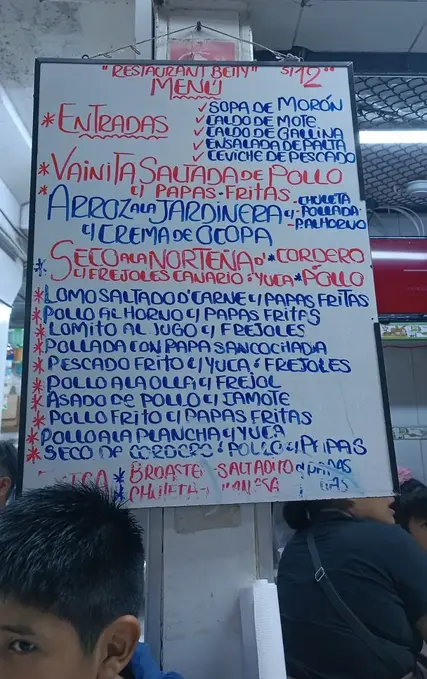 "RESTAURANT BETTY" S/12.00
MENÚ
* ENTRADAS
✓ SOPA DE MORÓN
✓ CALDO DE MOTE
✓ CALDO DE GALLINA
✓ ENSALADA DE PALTA
✓ CEVICHE DE PESCADO
* VAINITA SALTADA DE POLLO
* C/ PAPAS-FRITAS
ARROZ A LA JARDINERA C/
- CHULETA
- POLLADA
- P.ALHORNO
C/ CREMA DE OCOPA
* SECO A LA NORTEÑA D' * CORDERO
C/ FREJOLES CANARIO ó YUCA * POLLO
* LOMO SALTADO D' CARNE C/ PAPAS FRITAS
* POLLO AL HORNO C/ PAPAS FRITAS
* LOMITO AL JUGO C/ FREJOLES
* POLLADA CON PAPA SANCOCHADA
* PESCADO FRITO C/ YUCA ó FREJOLES
* POLLO A LA OLLA C/ FREJOL
* ASADO DE POLLO C/ CAMOTE
* POLLO FRITO C/ PAPAS FRITAS
* POLLO A LA PLANCHA C/ YUCA
* SECO DE CORDERO ó POLLO C/ PAPAS
* BROASTER - SALTADITO C/ PAPAS
CHULETA -